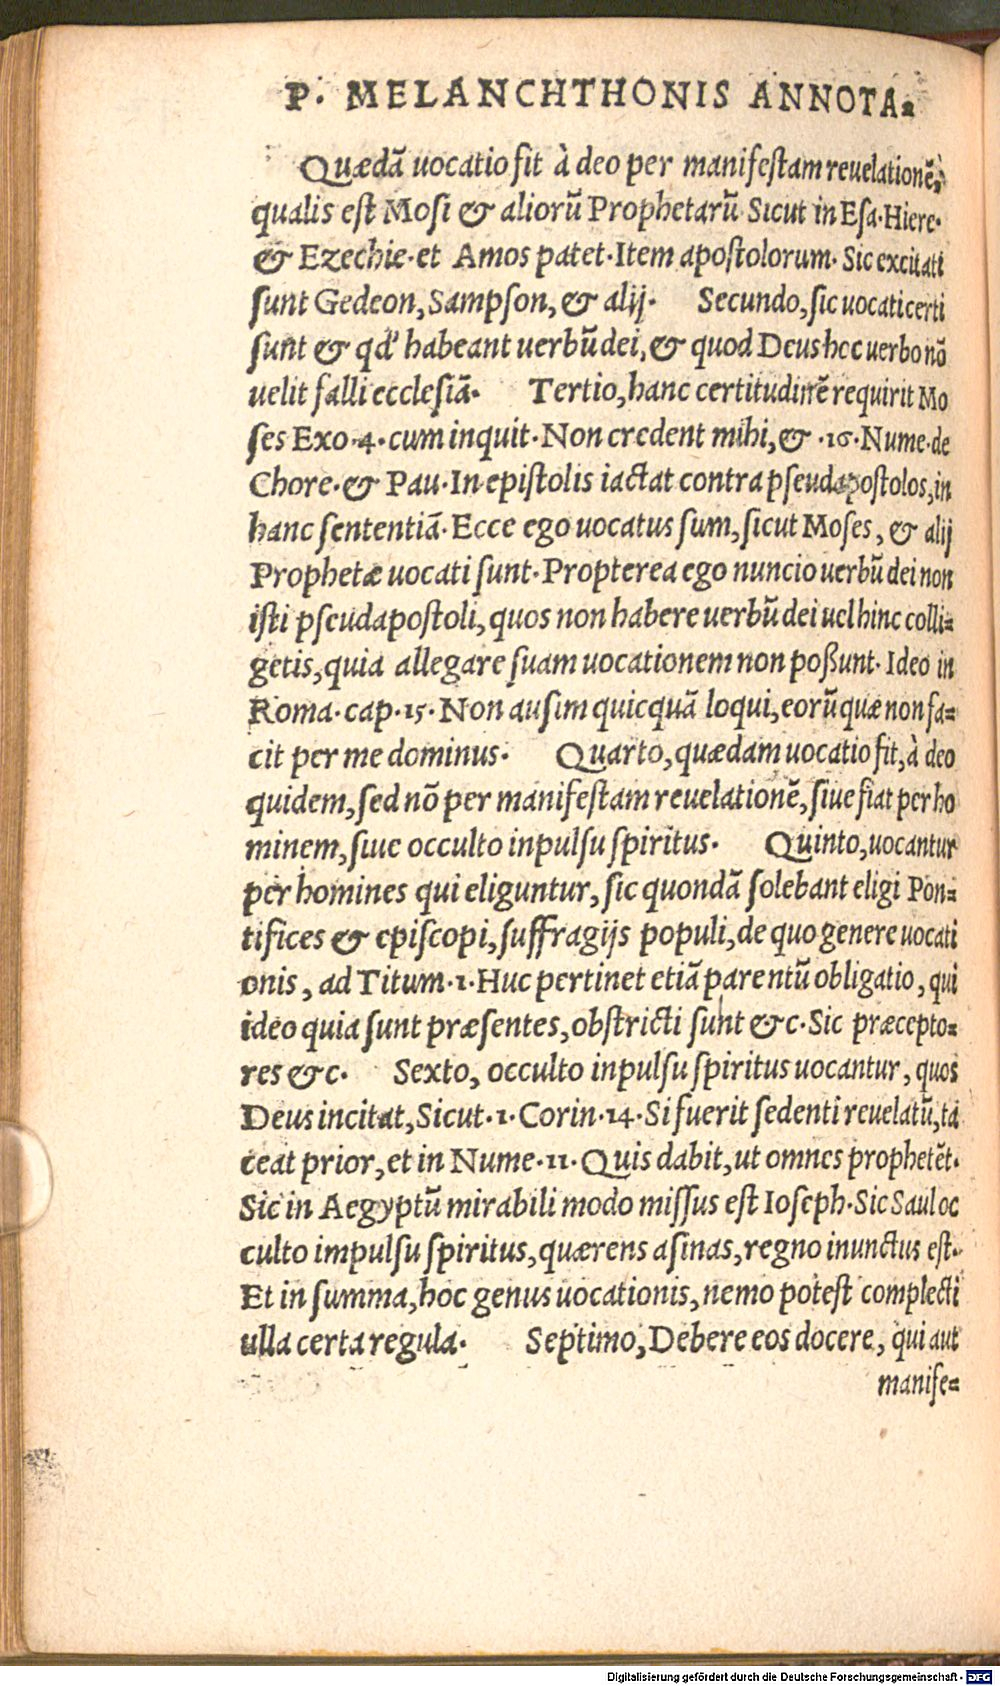 P. MELANCHTHONIS ANNOTA-
Quædã uocatio fit à deo per manifestam reuelationẽ,
qualis est Mosi & aliorũ Prophetarũ Sicut in Esa. Hiere.
& Ezechie. et Amos patet. Item apostolorum. Sic excitati
sunt Gedeon, Sampson, & alij. Secundo, sic uocati certi
sunt & qd' habeant uerbũ dei, & quod Deus hoc uerbo nõ
uelit falli ecclesiã. Tertio, hanc certitudinẽ requirit Mo
ses Exo. 4. cum inquit. Non credent mihi, & .16. Nume. de
Chore. & Pau. In epistolis iactat contra pseudapostolos, in
hanc sententiã. Ecce ego uocatus sum, sicut Moses, & alij
Prophetæ uocati sunt. Propterea ego nuncio uerbũ dei non
isti pseudapostoli, quos non habere uerbũ dei uel hinc colli-
getis, quia allegare suam uocationem non possunt. Ideo in
Roma. cap. 15. Non ausim quicquã loqui, eorũ quæ non fa-
cit per me dominus. Quarto, quædam uocatio fit, à deo
quidem, sed nõ per manifestam reuelationẽ, siue fiat per ho
minem, siue occulto inpulsu spiritus. Quinto, uocantur
per homines qui eliguntur, sic quondã solebant eligi Pon-
tifices & episcopi, suffragijs populi, de quo genere uocati
onis, ad Titum. 1. Huc pertinet etiã parentũ obligatio, qui
ideo quia sunt præsentes, obstricti sunt &c. Sic præcepto-
res &c. Sexto, occulto inpulsu spiritus uocantur, quos
Deus incitat, Sicut. 1. Corin. 14. Si fuerit sedenti reuelatũ, ta
ceat prior, et in Nume. 11. Quis dabit, ut omnes prophetẽt.
Sic in Aegyptũ mirabili modo missus est Ioseph. Sic Saul oc
culto impulsu spiritus, quærens asinas, regno inunctus est.
Et in summa, hoc genus uocationis, nemo potest complecti
ulla certa regula. Septimo, Debere eos docere, qui aut
manife-
Digitalisierung gefördert durch die Deutsche Forschungsgemeinschaft - DFG